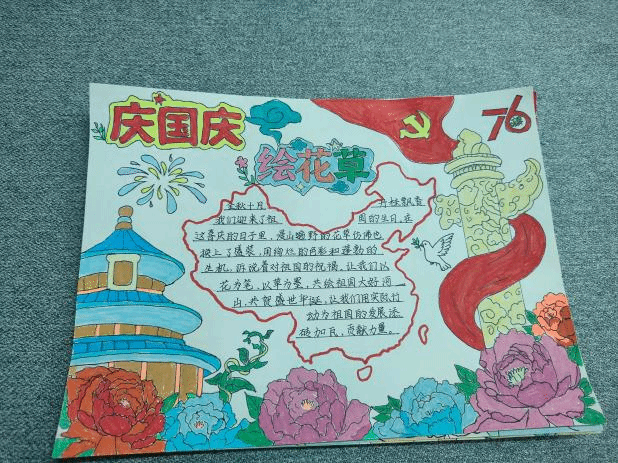 庆国庆
76
绘花草
金秋十月 丹桂飘香
我们迎来了祖 国的生日,在
这喜庆的日子里,漫山遍野的花草仿佛也
披上了盛装,用绚烂的色彩和蓬勃的
生机,诉说着对祖国的祝福,让我们以
花为笔,以草为墨,共绘祖国大好河
山,共贺盛世华诞,让我们用实际行
动为祖国的发展添
砖加瓦,贡献力量。